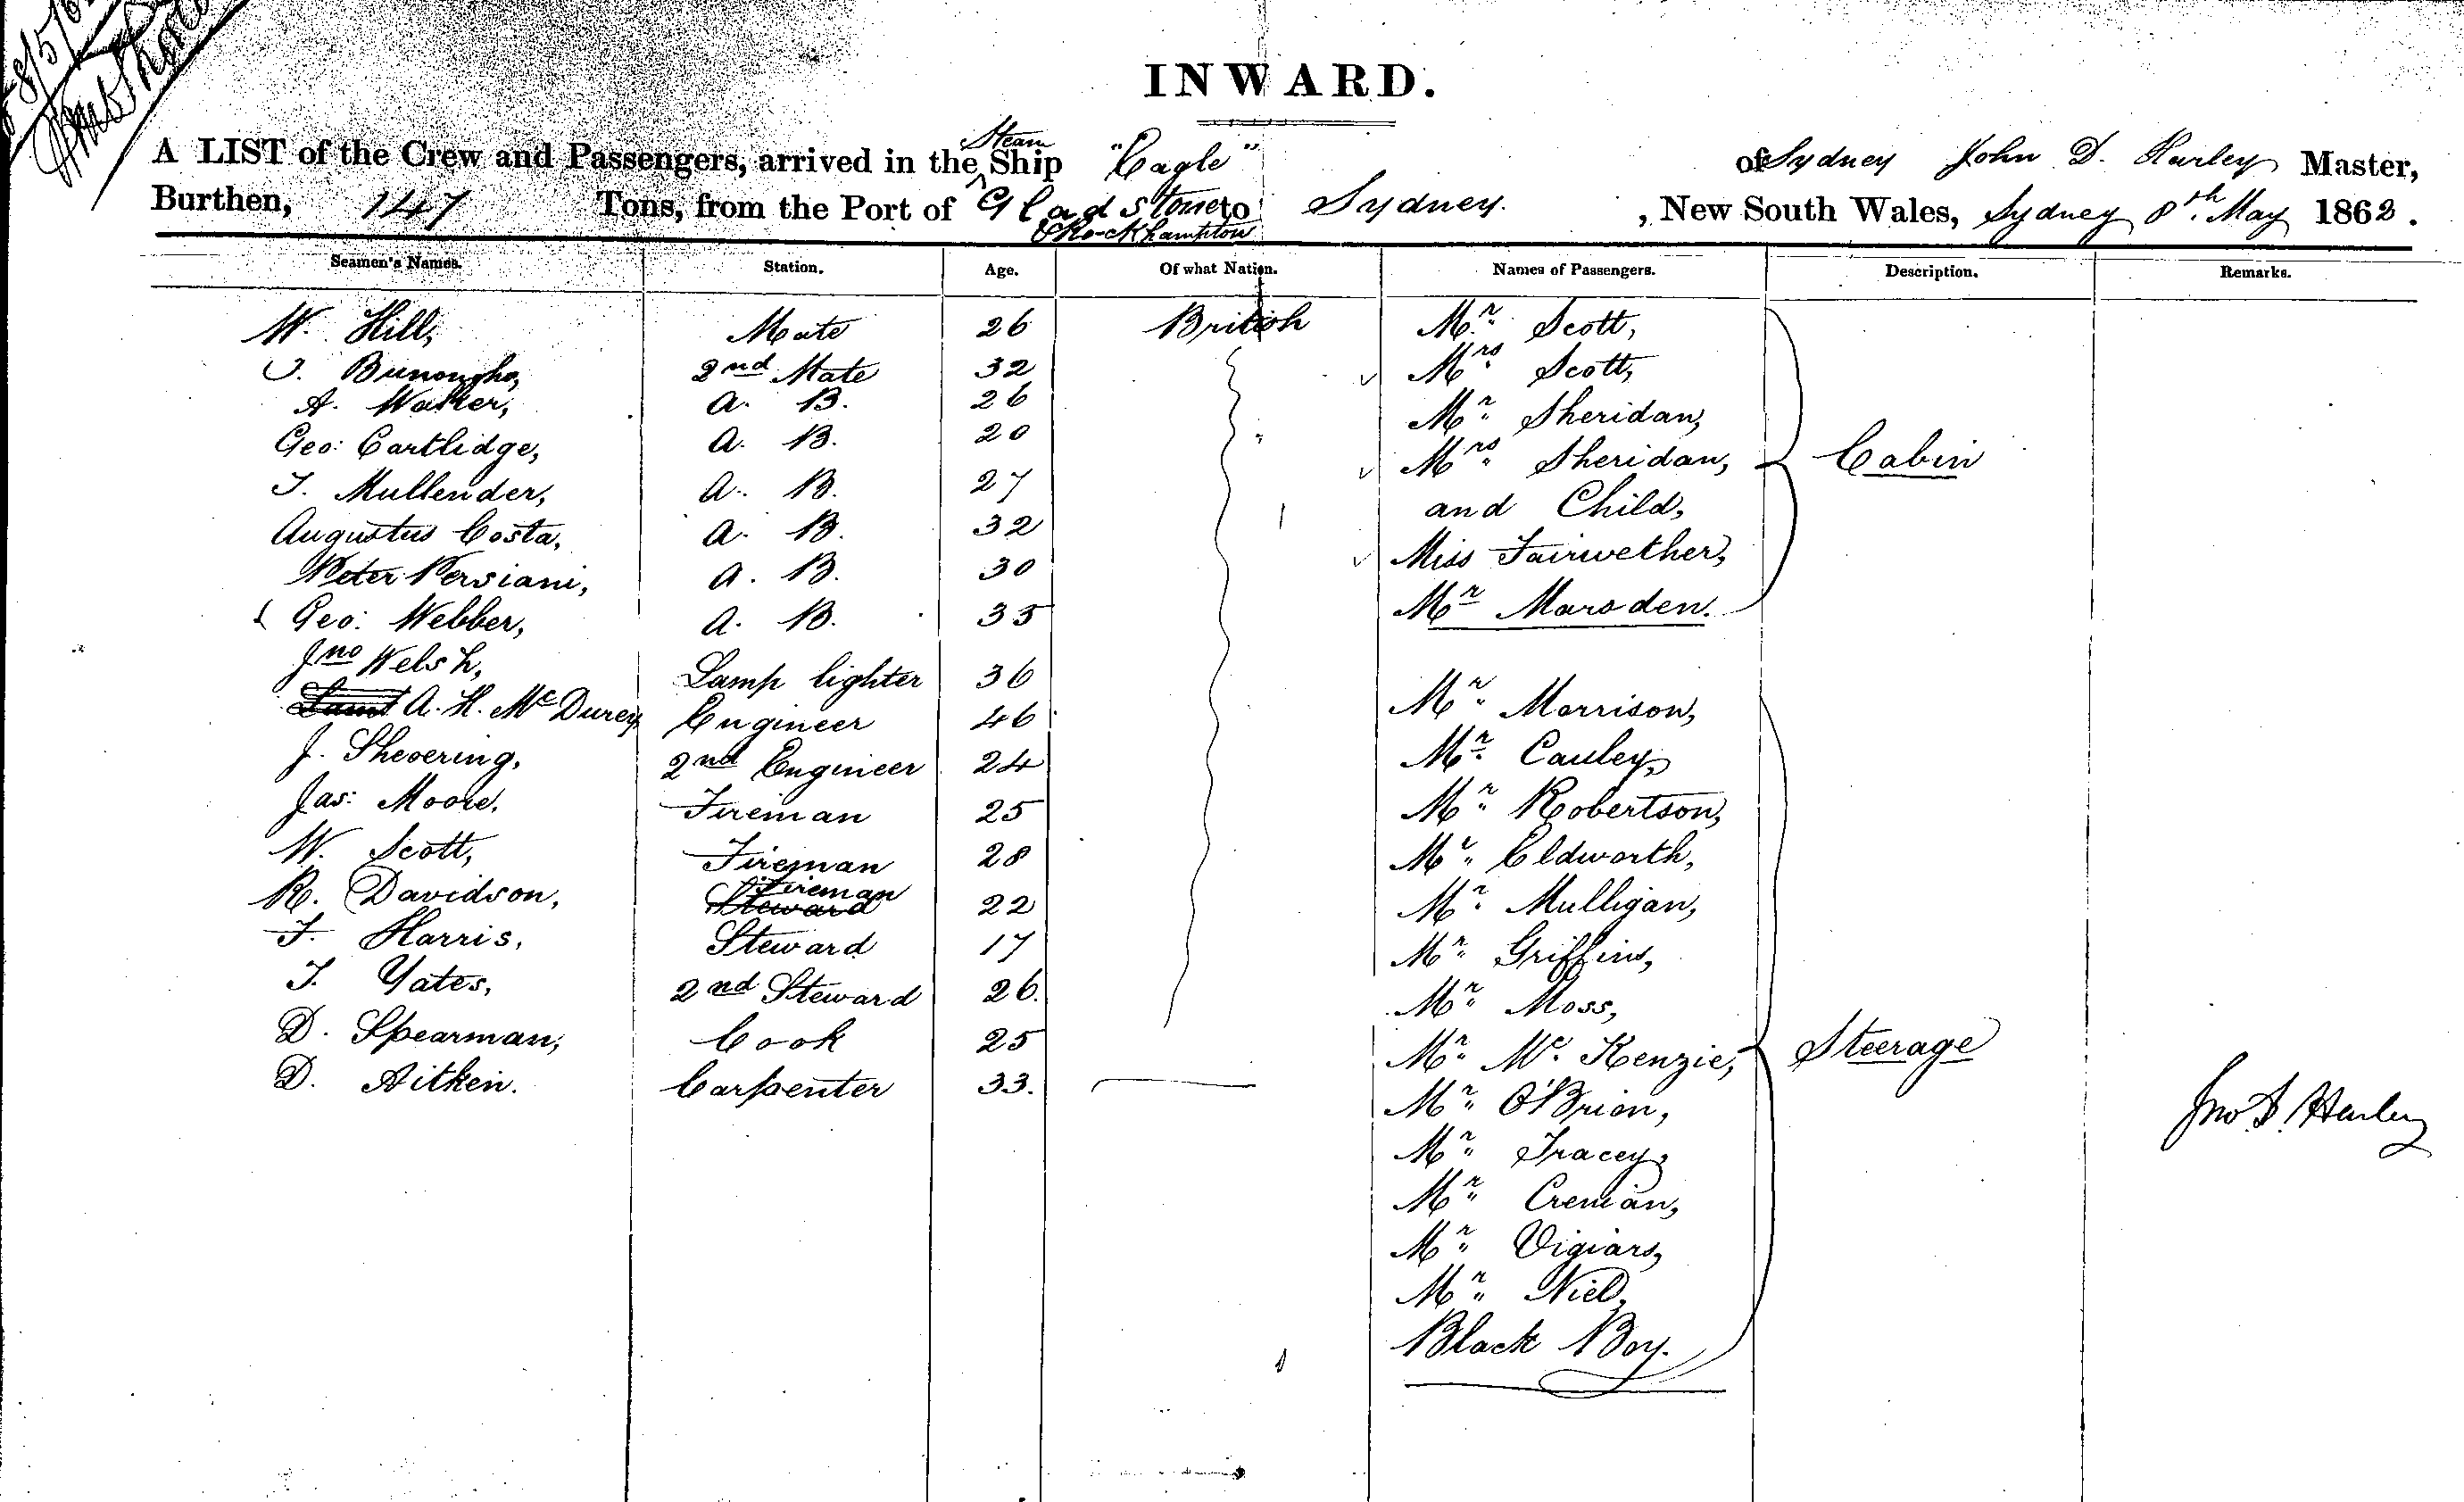 8/5/62
INWARD.
A LIST of the Crew and Passengers, arrived in the Steam Ship "Eagle" of Sydney John D. Hurley Master,
Burthen, 147 Tons, from the Port of Gladstone & Rockhampton to Sydney. , New South Wales, Sydney 8th May 1862.
Seamen's Names. Station. Age. Of what Nation. Names of Passengers. Description. Remarks.
W. Hill, Mate 26 British Mr. Scott,
2nd Mate 32 Mrs. Scott,
A. Walker, A. B. 26 Mr. Sheridan,
Geo: Cartlidge, A. B. 20 Mrs. Sheridan, Cabin
T. Mullender, A. B. 27 and Child,
Augustus Costa, A. B. 32 Miss Fairwether,
Peter Persiani, A. B. 30 Mr Marsden.
Geo: Webber, A. B. 35
Jno Welsh, Lamp lighter 36 Mr. Morrison,
A. H. McDurey Engineer 46 Mr. Cauley,
J. Shevering, 2nd Engineer 24 Mr. Robertson,
Jas: Moore. Fireman 25 Mr. Eldworth,
W. Scott, Fireman 28 Mr. Mulligan,
R. Davidson, Steward Fireman 22 Mr. Griffins,
T. Harris, Steward 17 Mr. Moss,
T. Yates, 2nd Steward 26. Mr. Mc. Kenzie, Steerage
D. Spearman, Cook 25 Mr. O'Brien,
D. Aitken. Carpenter 33. Mr. Tracey,
Mr. Crenian,
Mr. Vigiars,
Mr. Niel,
Black Boy.
Jno D. Hurley